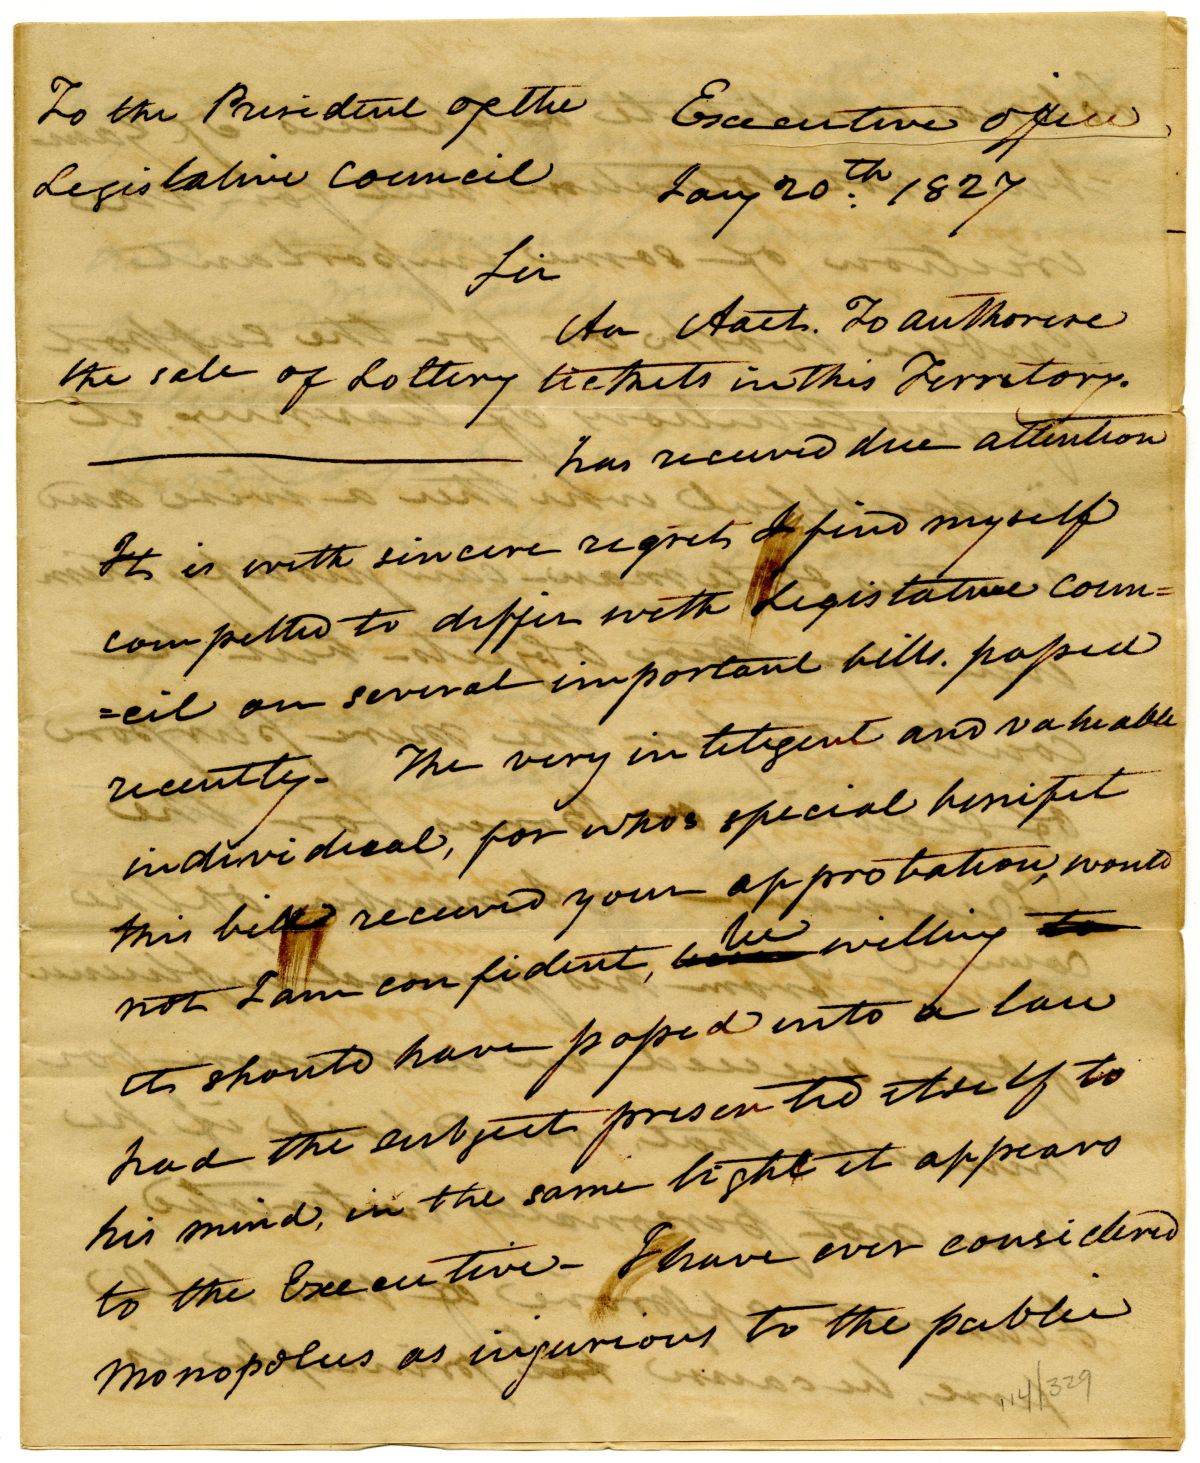 To the President of the
Legislative Council
Executive office
Jany 20th. 1827
Sir
An Act. To authorise
the sale of Lottery tickets in this Territory.
has received due attention
It is with sincere regret I find myself
compelled to differ with Legislative Coun=
=cil on several important bills. passed
recently. The very inteligent and valueable
individual, for whos special benifit
this bill received your approbation, would
not I am confident, be willing to
it should have passed into a law
had the subject presented itself to
his mind, in the same light it appears
to the Executive - I have ever considered
Monopolies as injurious to the public
114/329